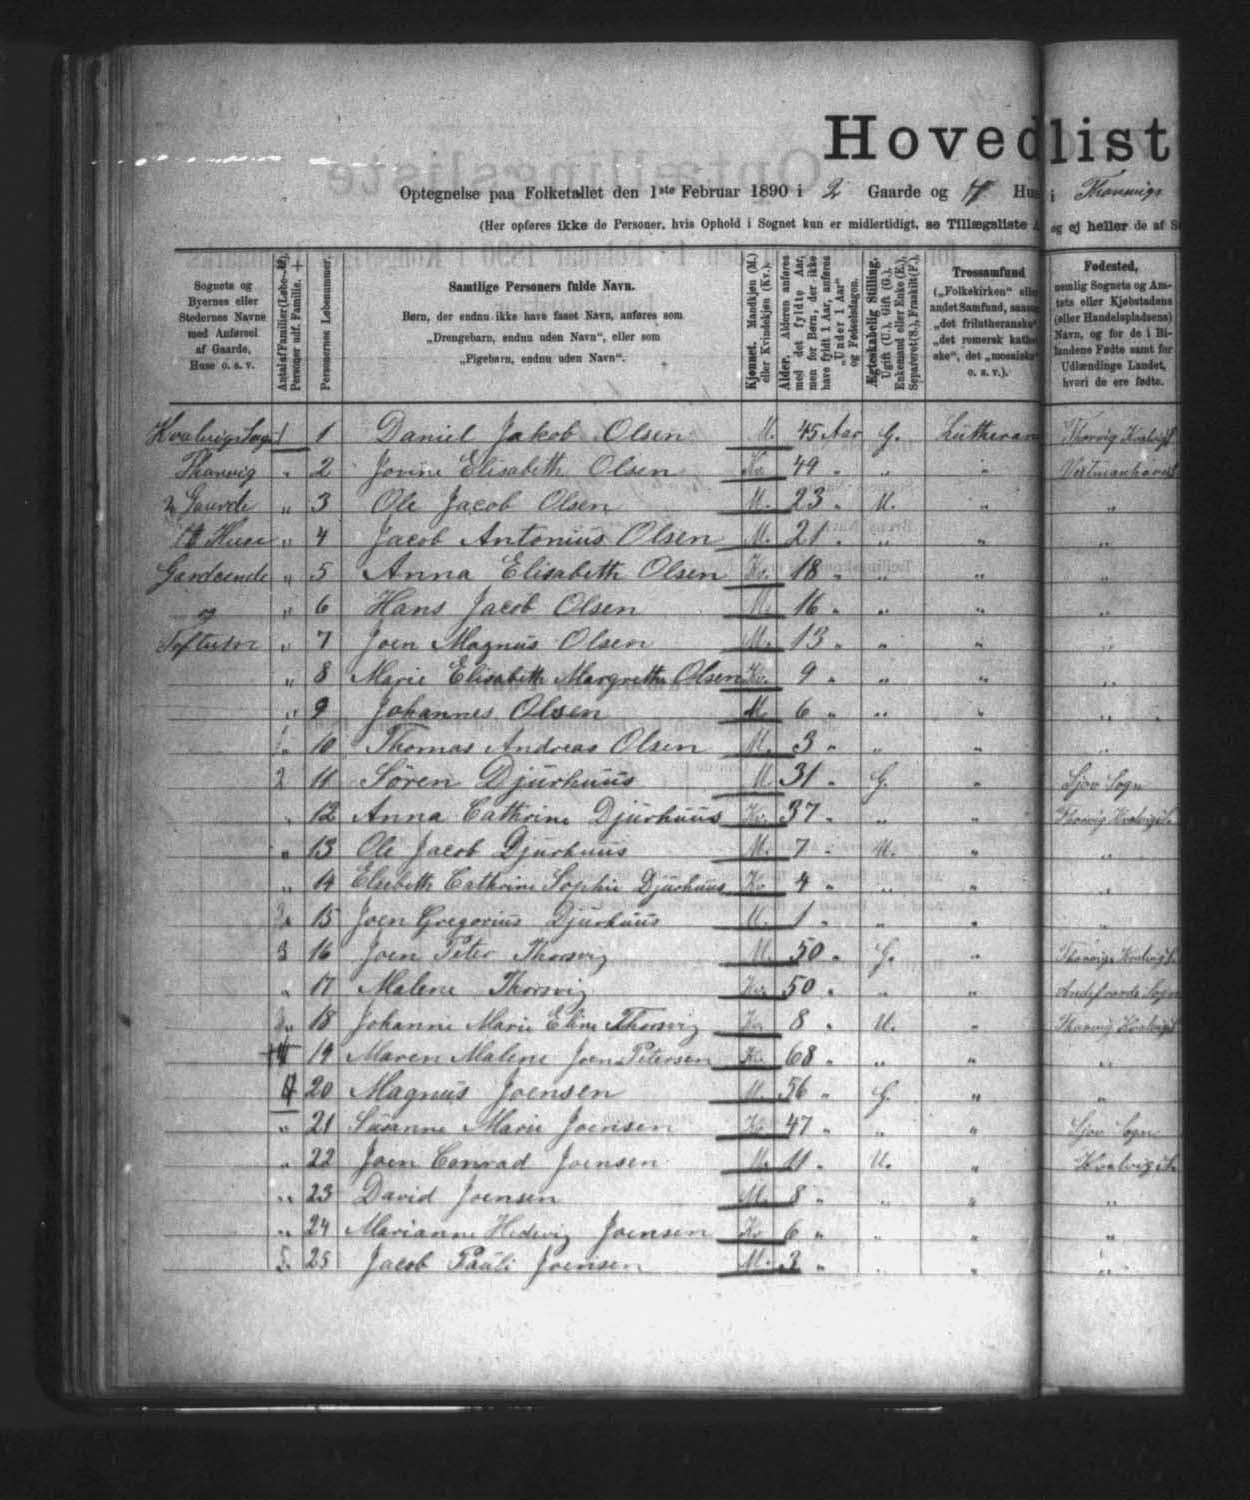 Hovedlist
Optegnelse paa Folketallet den 1ste Februar 1890 i 2 Gaarde og 4 Hus i Thorsvig
(Her opføres ikke de Personer, hvis Ophold i Sognet kun er midlertidigt, se Tillægsliste og ej heller de af S
Sognets og Byernes eller Stedernes Navne med Anførsel af Gaarde, Huse o. s. v.
Personernes Løbenummer.
Samtlige Personers fulde Navn.
Børn, der endnu ikke have faaet Navn, anføres som
„Drengebarn, endnu uden Navn“, eller som
„Pigebarn, endnu uden Navn“.
Kjønnet. Mandkjøn (M.) eller Kvindekjøn (Kv.).
Alder. Alderen anføres med det fyldte Aar, men for Børn, der ikke have fyldt 1 Aar, anføres „Under 1 Aar“ og Fødselsdagen.
Ægteskabelig Stilling. Ugift (U.), Gift (G.), Enkemand eller Enke (E.), Separeret (S.), Fraskilt (F.).
Trossamfund („Folkekirken“ eller andet Samfund, saasom „det frilutheranske“ „det romersk katholske“, det „mosaiske“ o. s. v.).
Fødested, nemlig Sognets og Amtets eller Kjøbstadens (eller Handelspladsens) Navn, og for de i Bilandene Fødte samt for Udlændinge Landet, hvori de ere fødte.
1 1 Daniel Jakob Olsen M. 45 Aar G. Lutheran
Thorsvig „ 2 Jovine Elisabeth Olsen Kv. 49 „ „ „
2 Gaarde „ 3 Ole Jacob Olsen M. 23 „ U. „ „
Huse „ 4 Jacob Antonius Olsen M. 21 „ „ „ „
„ 5 Anna Elisabeth Olsen Kv. 18 „ „ „ „
og „ 6 Hans Jacob Olsen M. 16 „ „ „ „
„ 7 Joen Magnus Olsen M. 13 „ „ „ „
„ 8 Marie Elisabeth Margrethe Olsen Kv. 9 „ „ „ „
„ 9 Johannes Olsen M. 6 „ „ „ „
10 Thomas Andreas Olsen M. 3 „ „ „ „
2 11 Søren Djurhuus M. 31 „ G. „ Sjov Sogn
„ 12 Anna Cathrine Djurhuus Kv. 37 „ „ „
„ 13 Ole Jacob Djurhuus M. 7 „ U. „ „
„ 14 Elsebeth Cathrine Sophie Djurhuus Kv. 4 „ „ „ „
15 Joen Gregorius Djurhuus M. 1 „ „ „ „
3 16 Joen Peter Thorsvig M. 50 „ G. „
„ 17 Malene Thorsvig Kv. 50 „ „ „
18 Johanne Marie Eline Thorsvig Kv. 8 „ U. „
19 Maren Malene Joen Petersen Kv. 68 „ „ „ „
4 20 Magnus Joensen M. 56 „ G. „ „
„ 21 Susanne Marie Joensen Kv. 47 „ „ „ Sjov Sogn
„ 22 Joen Conrad Joensen M. 11 „ U. „ Kvalvig S.
„ 23 David Joensen M. 8 „ „ „ „
„ 24 Marianne Hedevig Joensen Kv. 6 „ „ „ „
5 25 Jacob Pauli Joensen M. 2 „ „ „ „